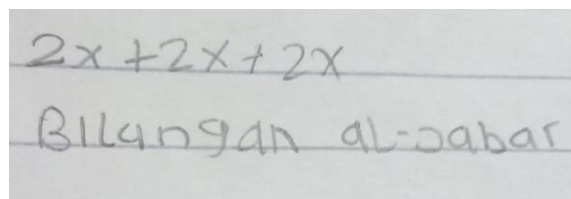 2x+2x+2x
Bilangan al-jabar